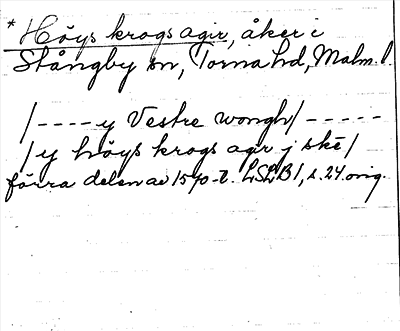 * Höys krogs agir, åker i
Stångby sn, Torna hd, Malm. l.
/ - - - - y Vestre wongh / - - - - -
/ y höys krogs agir j skē /
förra delen av 1570-t. LSLB I, s. 24 orig.